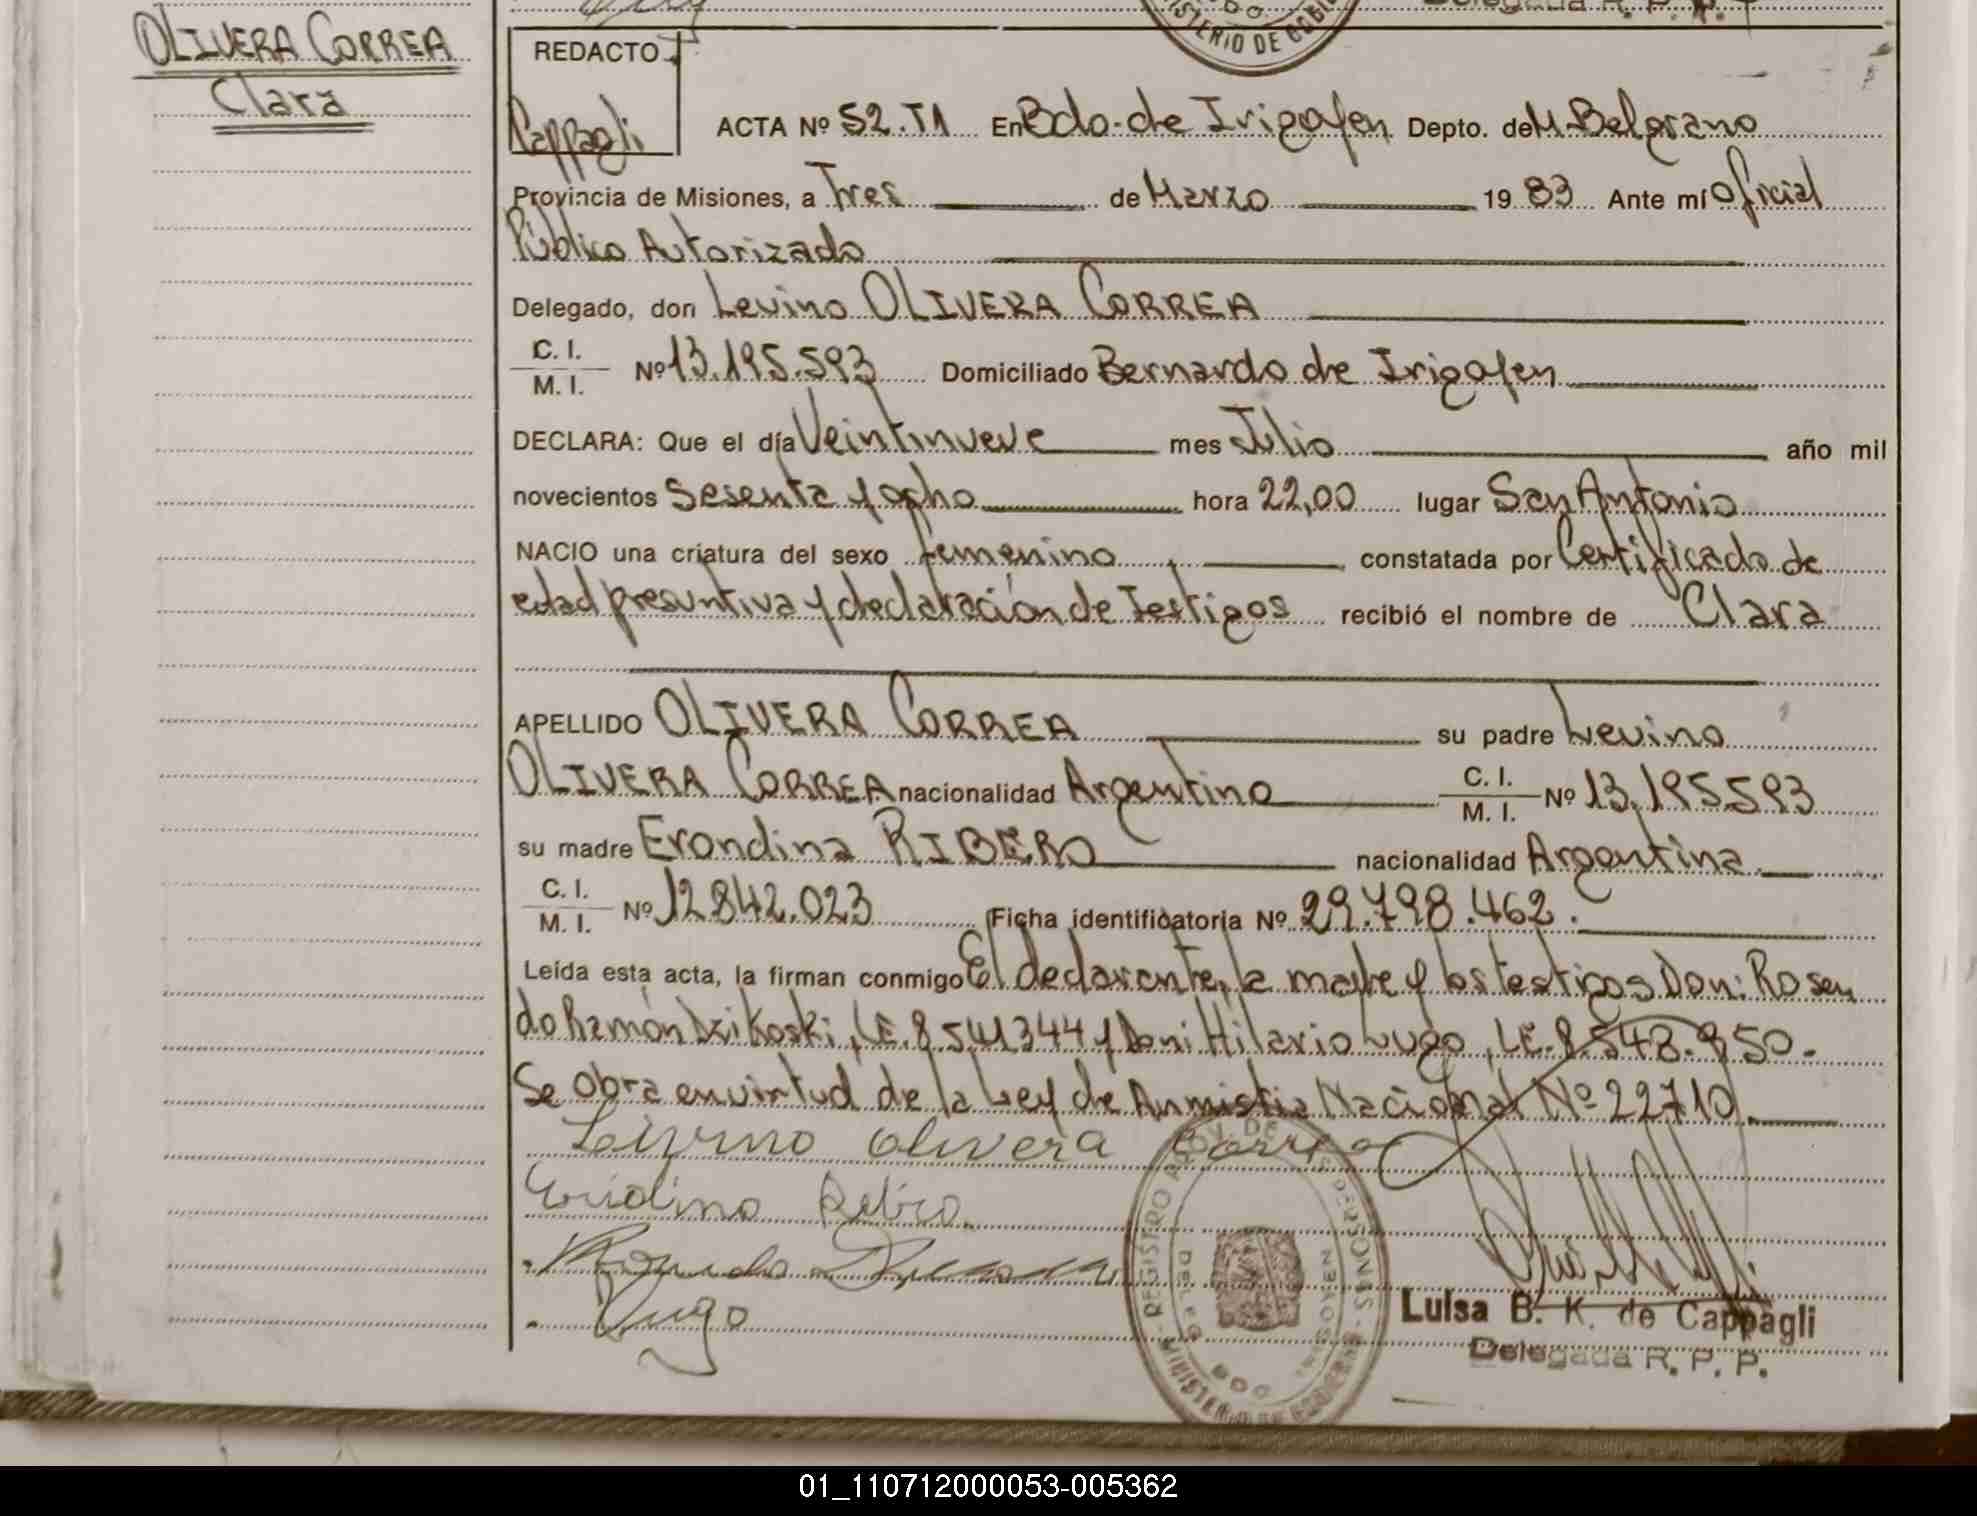 OLIVERA CORREA
Clara
REDACTO
Cappagli
ACTA Nº 52.T1 En Bdo. de Irigoyen Depto. de M. Belgrano
Provincia de Misiones, a Tres de Marzo 1983 Ante mí Oficial
Público Autorizado
Delegado, don Levino OLIVERA CORREA
C. I.
M. I. Nº 13.195.593 Domiciliado Bernardo de Irigoyen
DECLARA: Que el día Veintinueve mes Julio año mil
novecientos Sesenta y ocho hora 22,00 lugar San Antonio
NACIO una criatura del sexo femenino constatada por Certificado de
edad presuntiva y declaración de Testigos recibió el nombre de Clara
APELLIDO OLIVERA CORREA su padre Levino
OLIVERA CORREA nacionalidad Argentino C. I. M. I. Nº 13.195.593
su madre Erondina RIBERO nacionalidad Argentina
C. I.
M. I. Nº 12.842.023 Ficha identificatoria Nº 29.798.462.
Leída esta acta, la firman conmigo El declarante, la madre y los testigos Don: Rosen
do Ramón Dzikoski, LE. 8.541.344 y Don: Hilario Lugo, LE. 8.548.950.
Se obra en virtud de la Ley de Anmistia Nacional Nº 22710.
Olivera Correa
Lugo
REGISTRO PROV. DE LAS PERSONAS
MINISTERIO DE GOBIERNO
Luisa B. K. de Cappagli
Delegada R. P. P.
01_110712000053-005362